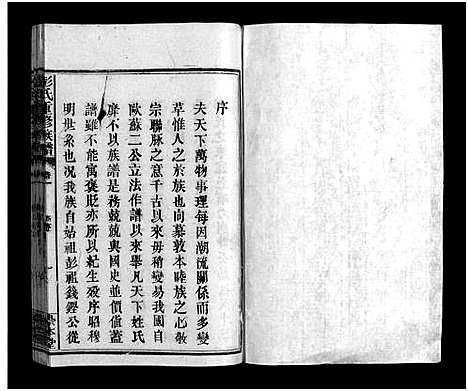 序
夫天下萬物事理每因潮流關係而多變
草惟人之於族也向慕敦本睦族之心敬
宗聯脉之意千古以來毋稍變易我國自
歐蘇二公立法作譜以來舉凡天下姓氏
靡不以族譜是務兢兢與國史並價值蓋
譜雖不能寓褒貶亦所以紀生殁序昭穆
明世系也况我族自始祖彭祖籛鏗公從
彭氏重修族譜